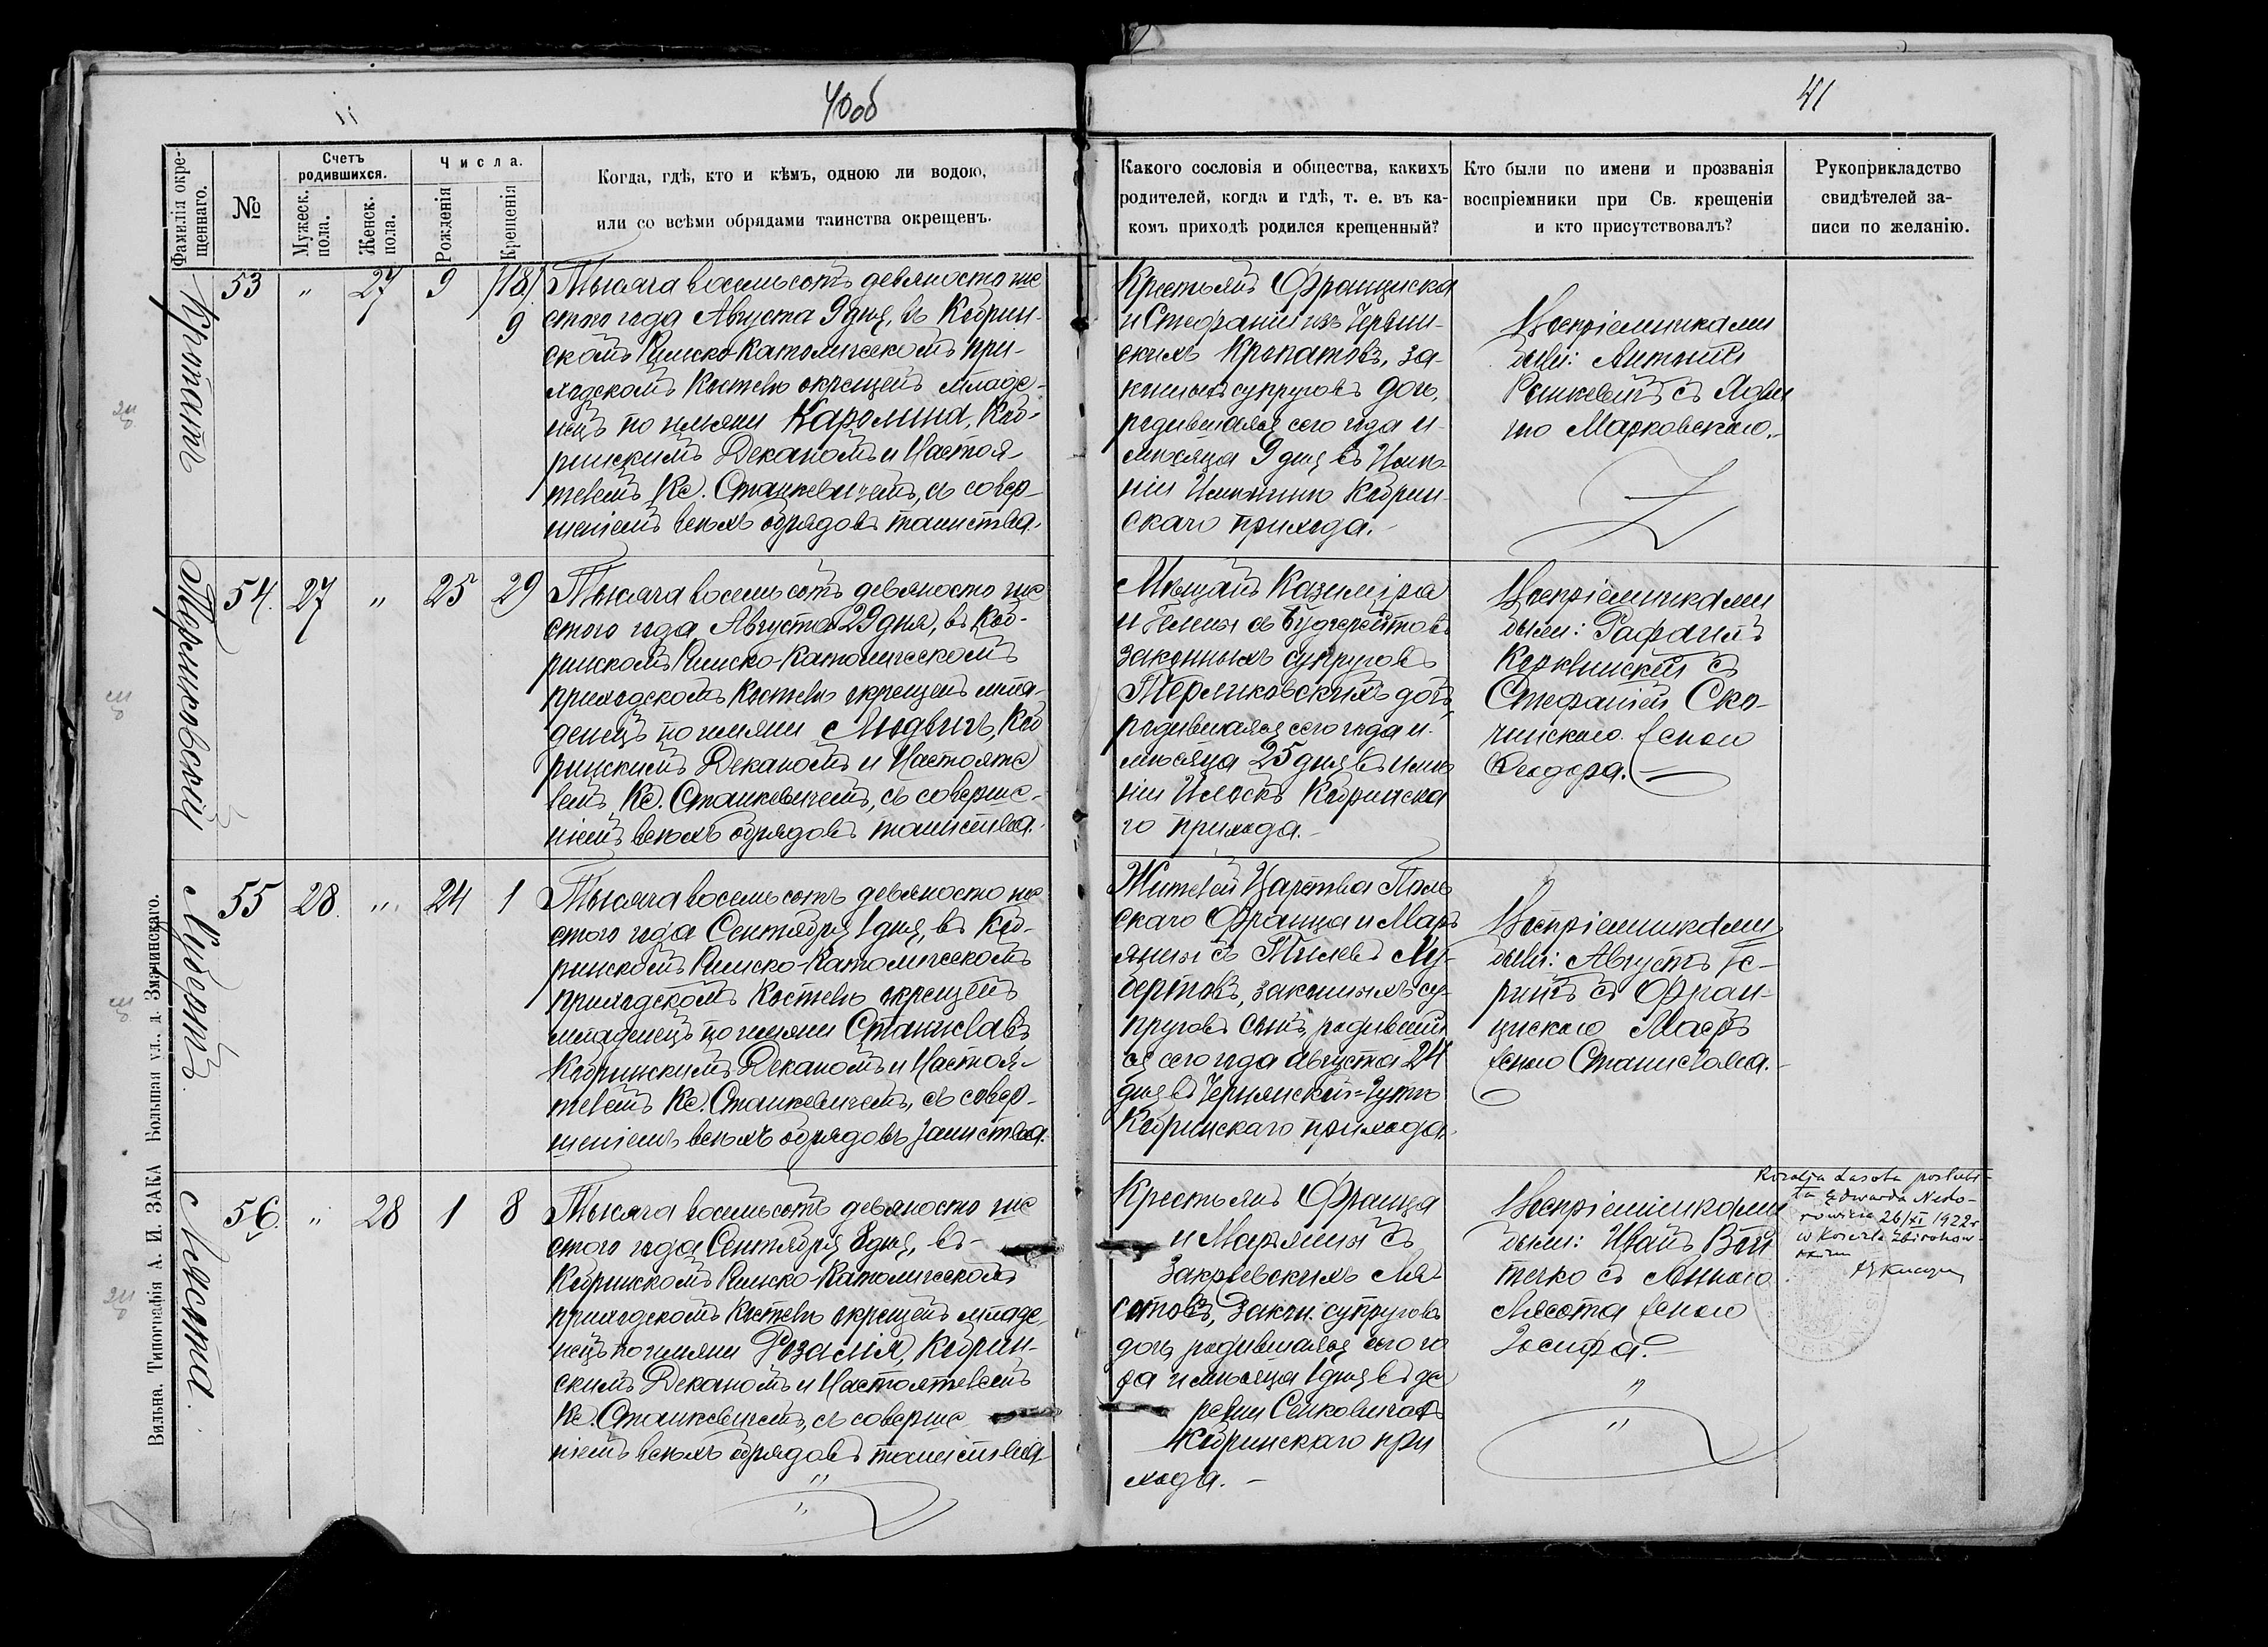 40об
41
Фамилія окре-
щеннаго.
№
Счетъ
родившихся.
Мужеск.
пола.
Женск.
пола.
Числа.
Рожденія
Крещенія
Когда, гдѣ, кто и кѣмъ, одною ли водою,
или со всѣми обрядами таинства окрещенъ.
Какого сословія и общества, какихъ
родителей, когда и гдѣ, т. е. въ ка-
комъ приходѣ родился крещенный?
Кто были по имени и прозванія
воспріемники при Св. крещеніи
и кто присутствовалъ?
Рукоприкладство
свидѣтелей за-
писи по желанію.
Кропатъ
53
"
27
9
9
Тысяча восемьсотъ девяносто ше
стого года Августа 9 дня, въ Кобрин-
скомъ Римско-Католическомъ при-
ходскомъ Костелѣ окрещенъ младе-
нецъ по имяни Каролина, Коб-
ринскимъ Деканомъ и Настоя-
телемъ Кс. Станкевичемъ, съ совер-
шеніемъ всѣхъ обрядовъ таинства.
Крестьянъ Франциска
и Стефаніи изъ
Кропатовъ, за-
конныхъ супруговъ дочь,
родившаяся сего года и
мѣсяца 9 дня въ Имѣ-
ніи Кобрин-
скаго прихода.
Воспріемниками
были: Антоній
съ Ядви
гою Марковскою.
Терликовскій
54.
27
"
25
29
Тысяча восемьсотъ девяносто ше
стого года Августа 29 дня, въ Коб-
ринскомъ Римско-Католическомъ
приходскомъ Костелѣ окрещенъ мла-
денецъ по имяни Людвигъ, Коб
ринскимъ Деканомъ и Настояте
лемъ Кс. Станкевичемъ, съ соверше-
ніемъ всѣхъ обрядовъ таинства.
Мѣщанъ Казиміра
и
законныхъ супруговъ
Терликовскихъ
родившаяся сего года и
мѣсяца 25 дня въ имѣ
ніи Илоскъ Кобринска
го прихода.
Воспріемниками
были: Рафаилъ
съ
Стефаніей Ско-
женою
Ѳеодора.
Лубертъ.
55
28.
"
24
1
Тысяча восемьсотъ девяносто ше
стого года Сентября 1 дня, въ Коб-
ринскомъ Римско-Католическомъ
приходскомъ Костелѣ окрещенъ
младенецъ по имяни Станиславъ,
Кобринскимъ Деканомъ и Настоя-
телемъ Кс. Станкевичемъ, съ совер-
шеніемъ всѣхъ обрядовъ таинства.
Жителей Царства Поль
скаго Франца и Марь
янны съ Лу-
бертовъ, законныхъ су-
пруговъ сынъ, родивший
ся сего года августа 24
дня въ
Кобринскаго прихода.
Воспріемниками
были: Августъ Ге-
рингъ съ Фран-
цискою
женою Станислава.
Лясота.
56.
"
28
1
8
Тысяча восемьсотъ девяносто ше
стого года Сентября 8 дня, въ
Кобринскомъ Римско-Католическомъ
приходскомъ Костелѣ окрещенъ младе-
нецъ по имяни Розалія, Кобрин-
скимъ Деканомъ и Настоятелемъ
Кс. Станкевичемъ, съ соверше
ніемъ всѣхъ обрядовъ таинства
Крестьянъ Франца
и Марьянны съ
Закржевскихъ Ля-
сотовъ, закон. супруговъ
дочь, родившаяся сего го
да и мѣсяца 1 дня въ де
ревни Сенковичахъ
Кобринскаго при
хода.
Воспріемниками
были: Иванъ Вой
течко съ Анною
Лясота женою
Іосифа.
Rozalja Lasota poślubi-
ła Edwarda Niesto-
rowicza 26/XI 1922 r
w Kościele
Вильна. Типографія А. И. ЗАКА Большая ул., д. Змачинскаго.